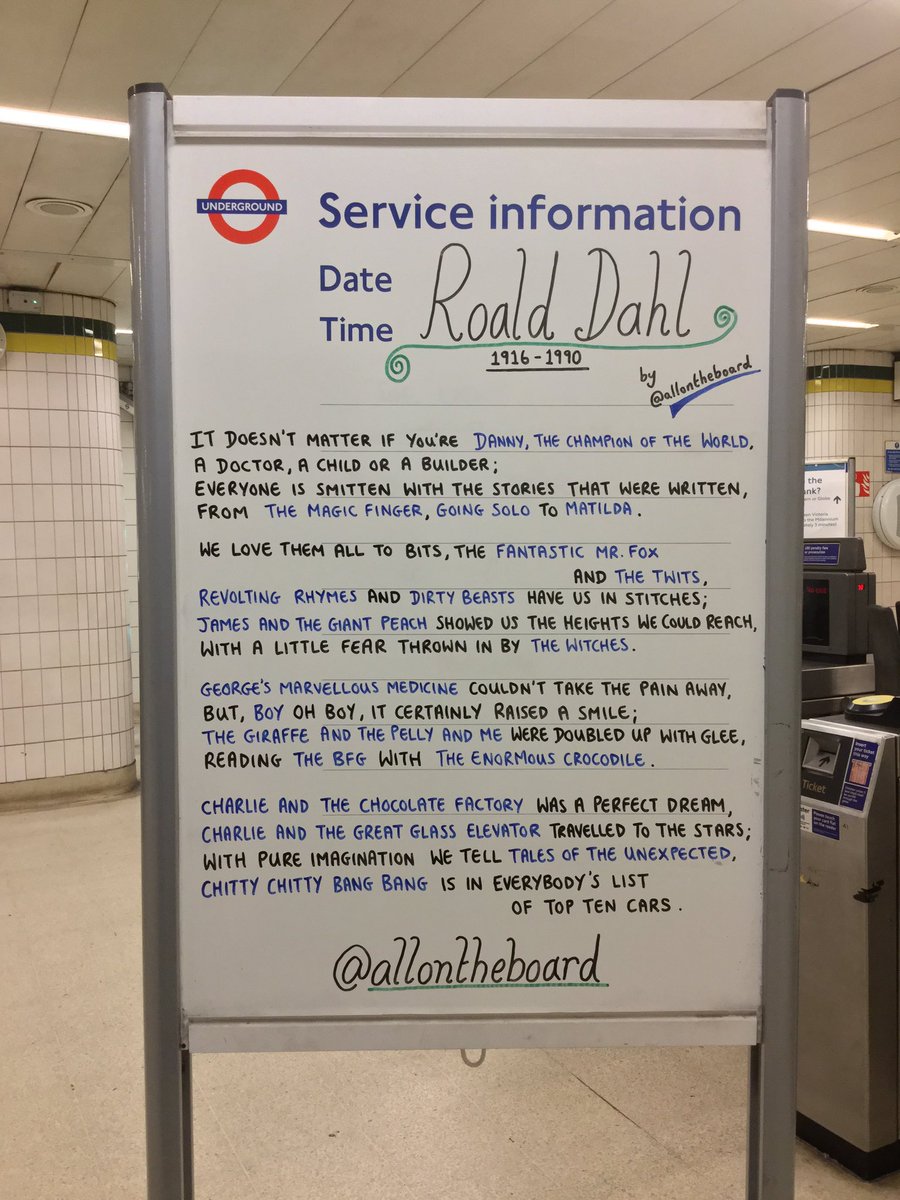 UNDERGROUND
Service information
Date
Time
Roald Dahl
1916-1990
by
@allontheboard
IT DOESN'T MATTER IF YOU'RE DANNY, THE CHAMPION OF THE WORLD,
A DOCTOR, A CHILD OR A BUILDER;
EVERYONE IS SMITTEN WITH THE STORIES THAT WERE WRITTEN,
FROM THE MAGIC FINGER, GOING SOLO TO MATILDA.
WE LOVE THEM ALL TO BITS, THE FANTASTIC MR. FOX
AND THE TWITS,
REVOLTING RHYMES AND DIRTY BEASTS HAVE US IN STITCHES;
JAMES AND THE GIANT PEACH SHOWED US THE HEIGHTS WE COULD REACH,
WITH A LITTLE FEAR THROWN IN BY THE WITCHES.
GEORGE'S MARVELLOUS MEDICINE COULDN'T TAKE THE PAIN AWAY,
BUT, BOY OH BOY, IT CERTAINLY RAISED A SMILE;
THE GIRAFFE AND THE PELLY AND ME WERE DOUBLED UP WITH GLEE,
READING THE BFG WITH THE ENORMOUS CROCODILE.
CHARLIE AND THE CHOCOLATE FACTORY WAS A PERFECT DREAM,
CHARLIE AND THE GREAT GLASS ELEVATOR TRAVELLED TO THE STARS;
WITH PURE IMAGINATION WE TELL TALES OF THE UNEXPECTED,
CHITTY CHITTY BANG BANG IS IN EVERYBODY'S LIST
OF TOP TEN CARS.
@allontheboard
the
Insert
your ticket
this way
Ticket